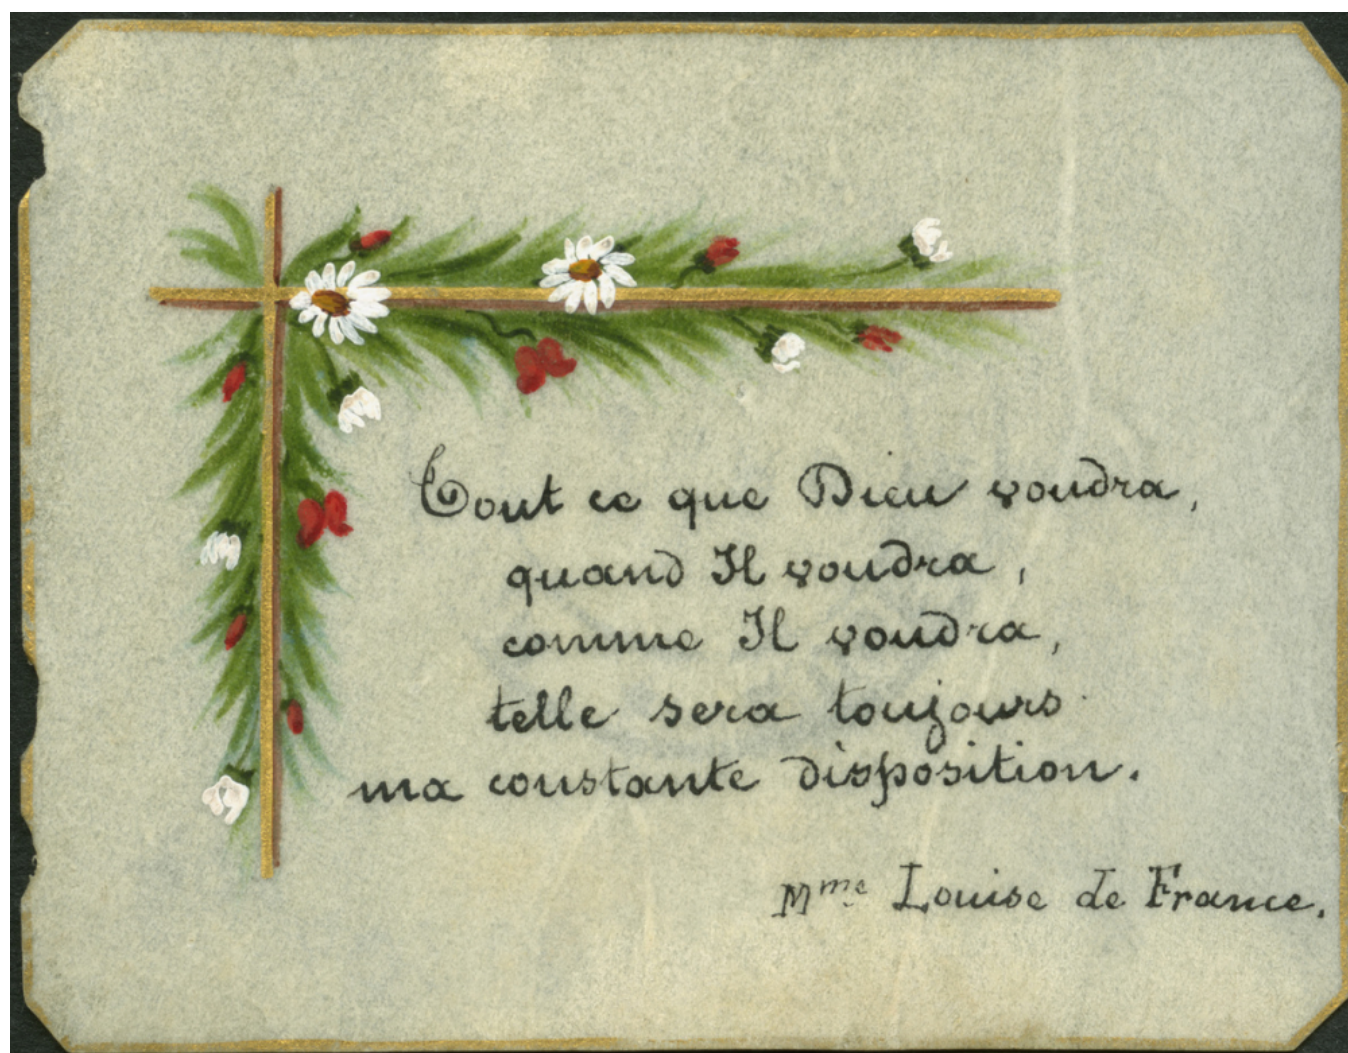 Tout ce que Dieu voudra,
quand Il voudra,
comme Il voudra,
telle sera toujours
ma constante disposition.
Mme Louise de France.